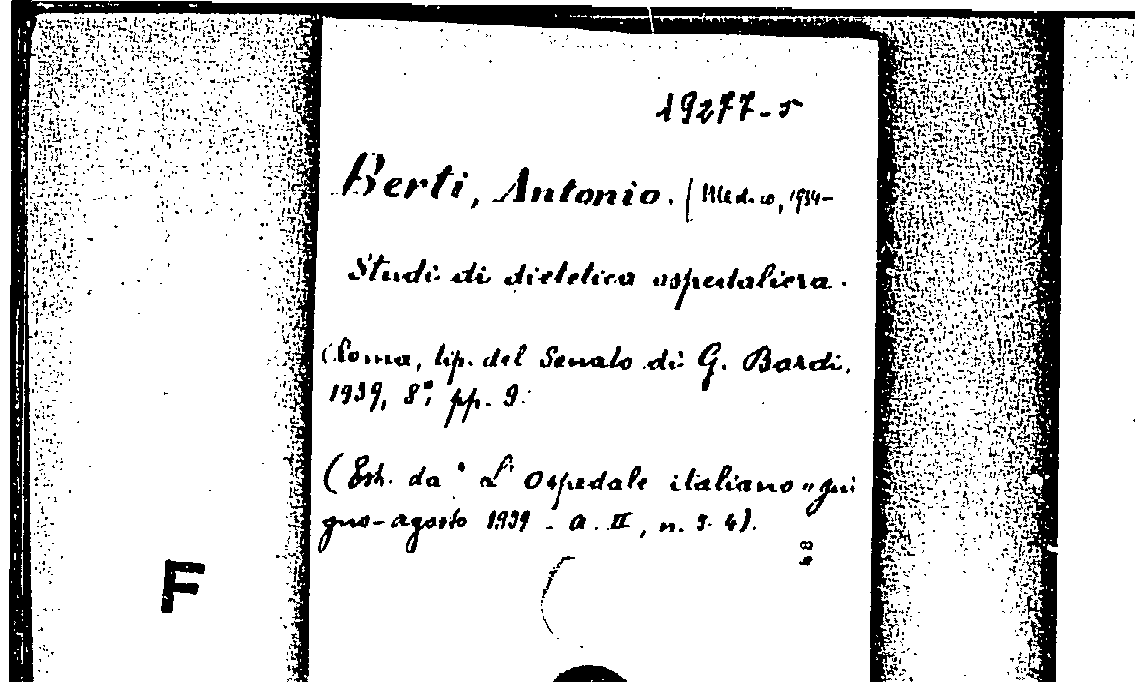 19277-5
Berti, Antonio. (Medico, 1934-
Studi di dietetica ospedaliera.
(Roma, tip. del Senato di G. Bardi,
1939, 8°, pp. 9.
(Estr. da "L'Ospedale italiano" giu
gno-agosto 1939 - a. II, n. 3-4).
F